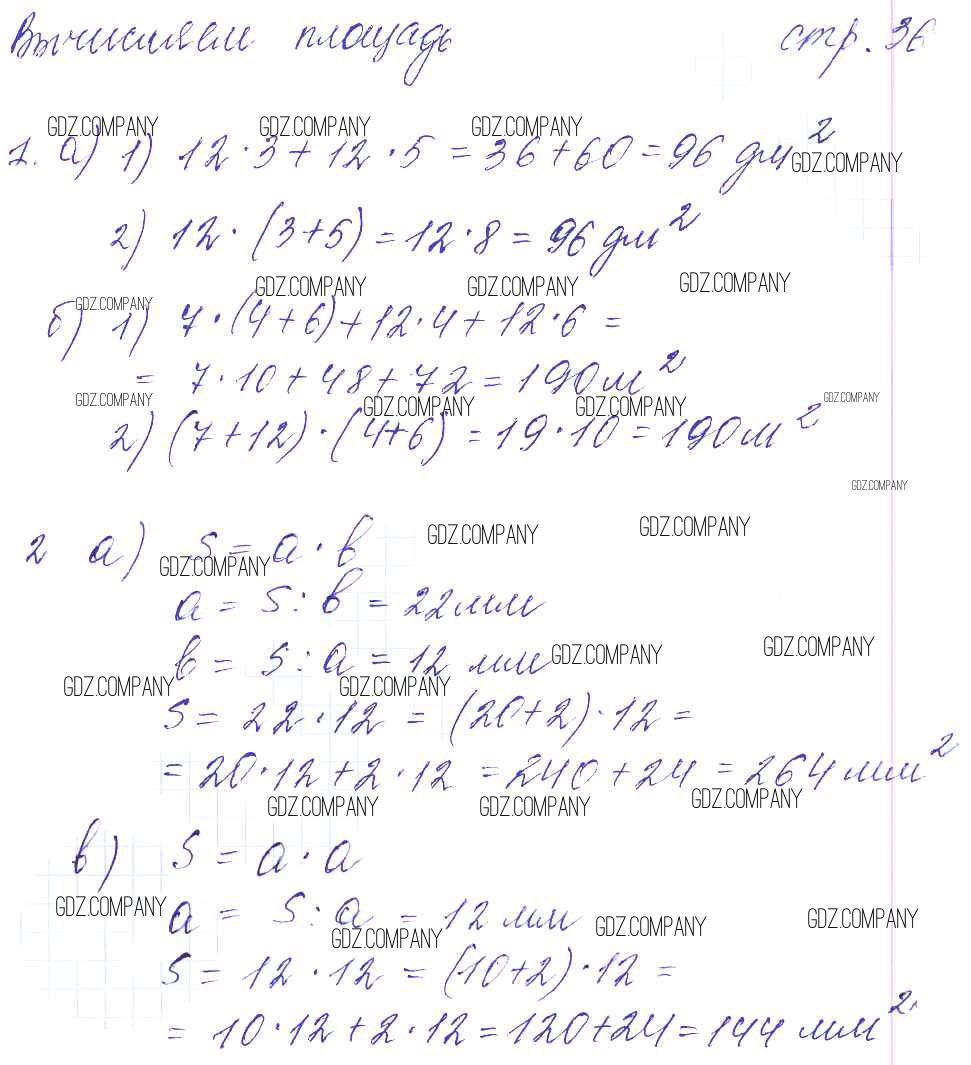 Вычисляем площадь стр. 36
GDZ.COMPANY GDZ.COMPANY GDZ.COMPANY
1. а) 1) 12·3+12·5=36+60=96 дм² GDZ.COMPANY
2) 12·(3+5)=12·8=96 дм²
GDZ.COMPANY GDZ.COMPANY GDZ.COMPANY GDZ.COMPANY
б) 1) 7·(4+6)+12·4+12·6=
= 7·10+48+72=190 м²
GDZ.COMPANY GDZ.COMPANY GDZ.COMPANY GDZ.COMPANY
2) (7+12)·(4+6)=19·10=190 м²
GDZ.COMPANY
GDZ.COMPANY GDZ.COMPANY
2 а) S=а·в
GDZ.COMPANY
а=S:в=22 мм
в=S:а=12 мм GDZ.COMPANY GDZ.COMPANY
GDZ.COMPANY GDZ.COMPANY
S=22·12=(20+2)·12=
=20·12+2·12=240+24=264 мм²
GDZ.COMPANY GDZ.COMPANY GDZ.COMPANY
в) S=а·а
GDZ.COMPANY
а=S:а=12 мм GDZ.COMPANY GDZ.COMPANY
GDZ.COMPANY
S=12·12=(10+2)·12=
=10·12+2·12=120+24=144 мм².